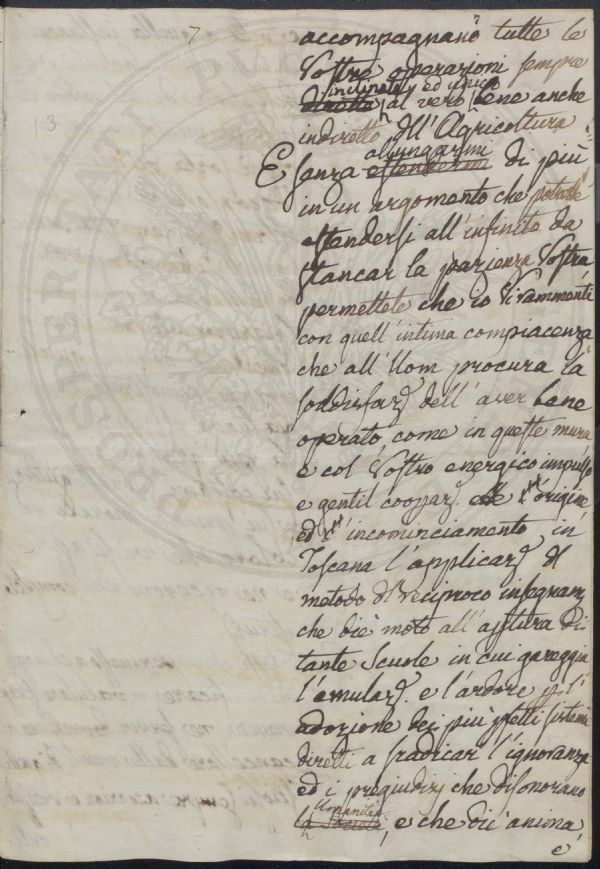 7
13
accompagnano tutte le
Vostre operazioni sempre
inclinate ed unico
diretta al vero bene anche
indiretto dll'Agricoltura
allungarmi
E sanza estendermi di più
in un argomento che potrebbe
estendersi all'infinito da
stancar la pazienza Vostra
permettete che io Vi rammenti
con quell'intima compiacenza
che all'Uom procura la
soddisfaz.e dell'aver bene
operato, come in queste mura
e col Vostro energico impulso
e gentil cooperaz.e l'origine
ed l'incominciamento in
Toscana l'applicaz.e del
metodo di reciproco insegnam.
che diè moto all'apertura di
tante Scuole in cui gareggia
l'emulaz.e e l'ardore p. l'
adozione dei più pfetti sistemi
diretti a sradicar l'ignoranza
ed i pregiudizj che disonorano
l'umanità
la Società, e che diè anima,
e